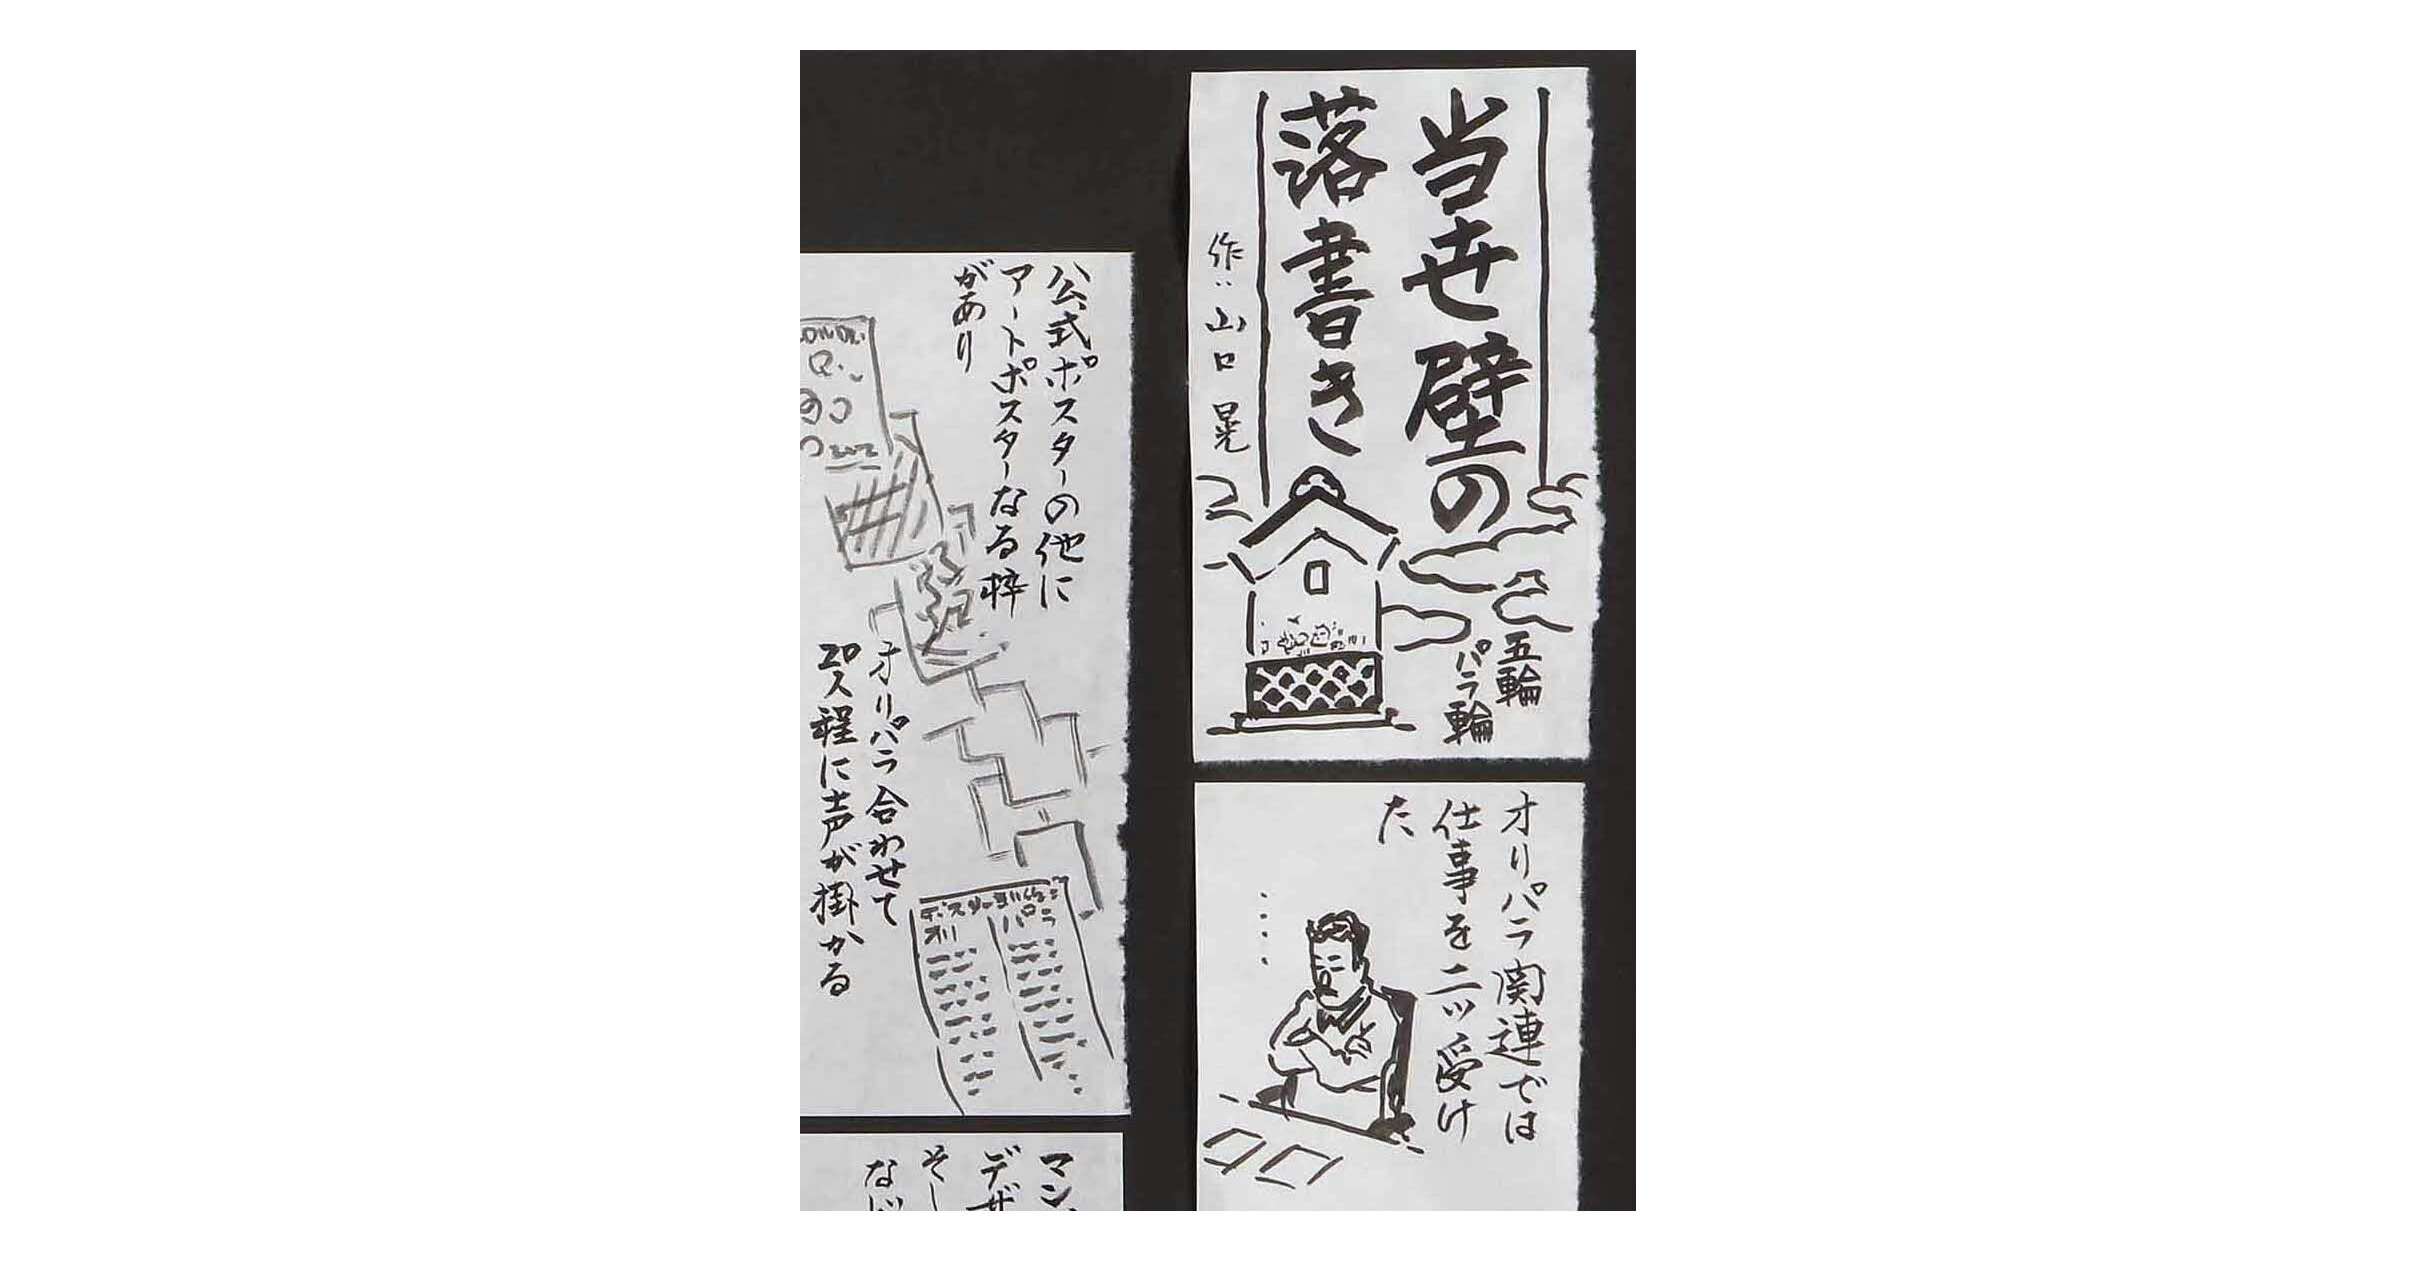 当世壁の
落書き
五輪
パラ輪
作：山口晃
オリパラ関連では
仕事を二ッ受け
た
公式ポスターの他に
アートポスターなる枠
があり
オリパラ合わせて
20人程に声が掛かる
オリ
パラ
マン
デザ
そし